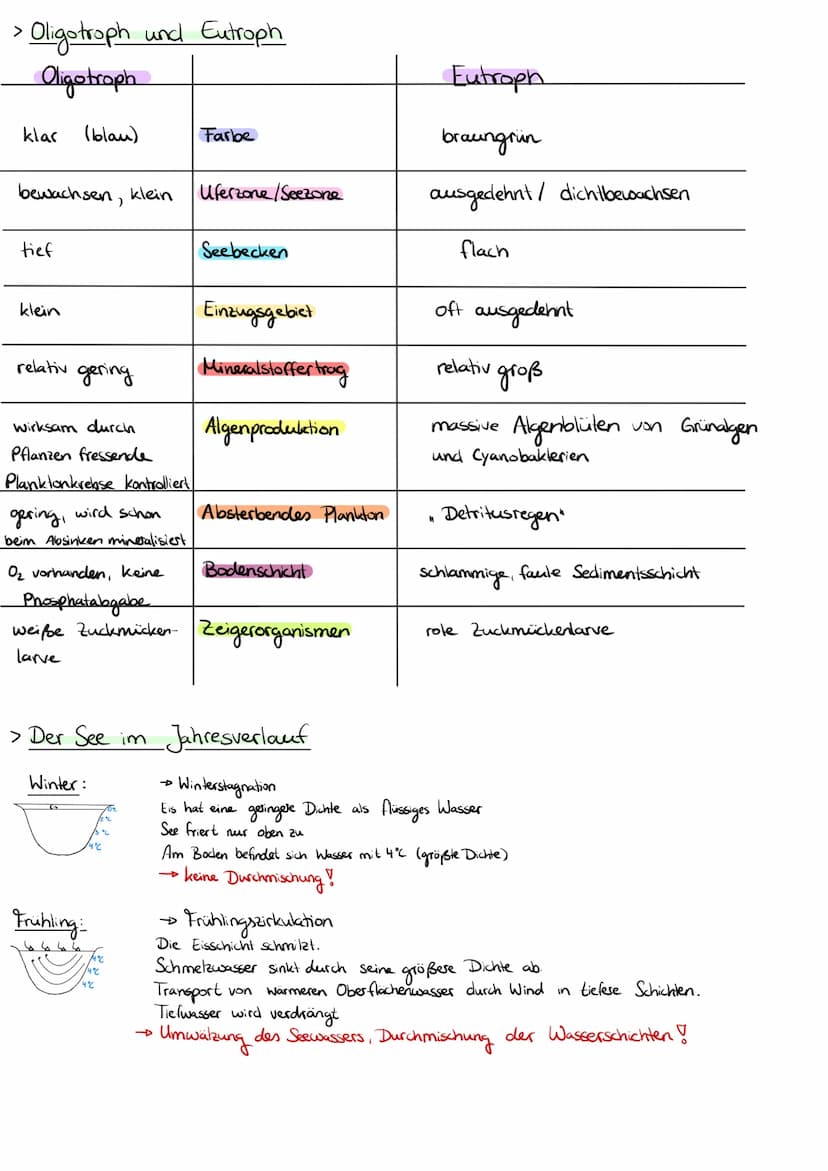 > Oligotroph und Eutroph
Oligotroph Eutroph
klar (blau) Farbe braungrün
bewachsen, klein Uferzone/Seezone ausgedehnt / dichtbewachsen
tief Seebecken flach
klein Einzugsgebiet oft ausgedehnt
relativ gering Mineralstoffertrag relativ groß
wirksam durch Algenproduktion massive Algenblüten von Grünalgen
Pflanzen fressende und Cyanobakterien
Planktonkrebse kontrolliert
gering, wird schon Absterbendes Plankton "Detritusregen"
beim Absinken mineralisiert
O₂ vorhanden, keine Bodenschicht schlammige, faule Sedimentsschicht
Phosphatabgabe
weiße Zuckmücken- Zeigerorganismen rote Zuckmückenlarve
larve
> Der See im Jahresverlauf
Winter: → Winterstagnation
Eis hat eine geringere Dichte als flüssiges Wasser
See friert nur oben zu
Am Boden befindet sich Wasser mit 4°C (größte Dichte)
4°C
→ keine Durchmischung!
Frühling: → Frühlingszirkulation
Die Eisschicht schmilzt.
4°C
Schmelzwasser sinkt durch seine größere Dichte ab
4°C
4°C
Transport von wärmeren Oberflächenwasser durch Wind in tiefere Schichten.
Tiefwasser wird verdrängt
→ Umwälzung des Seewassers, Durchmischung der Wasserschichten!